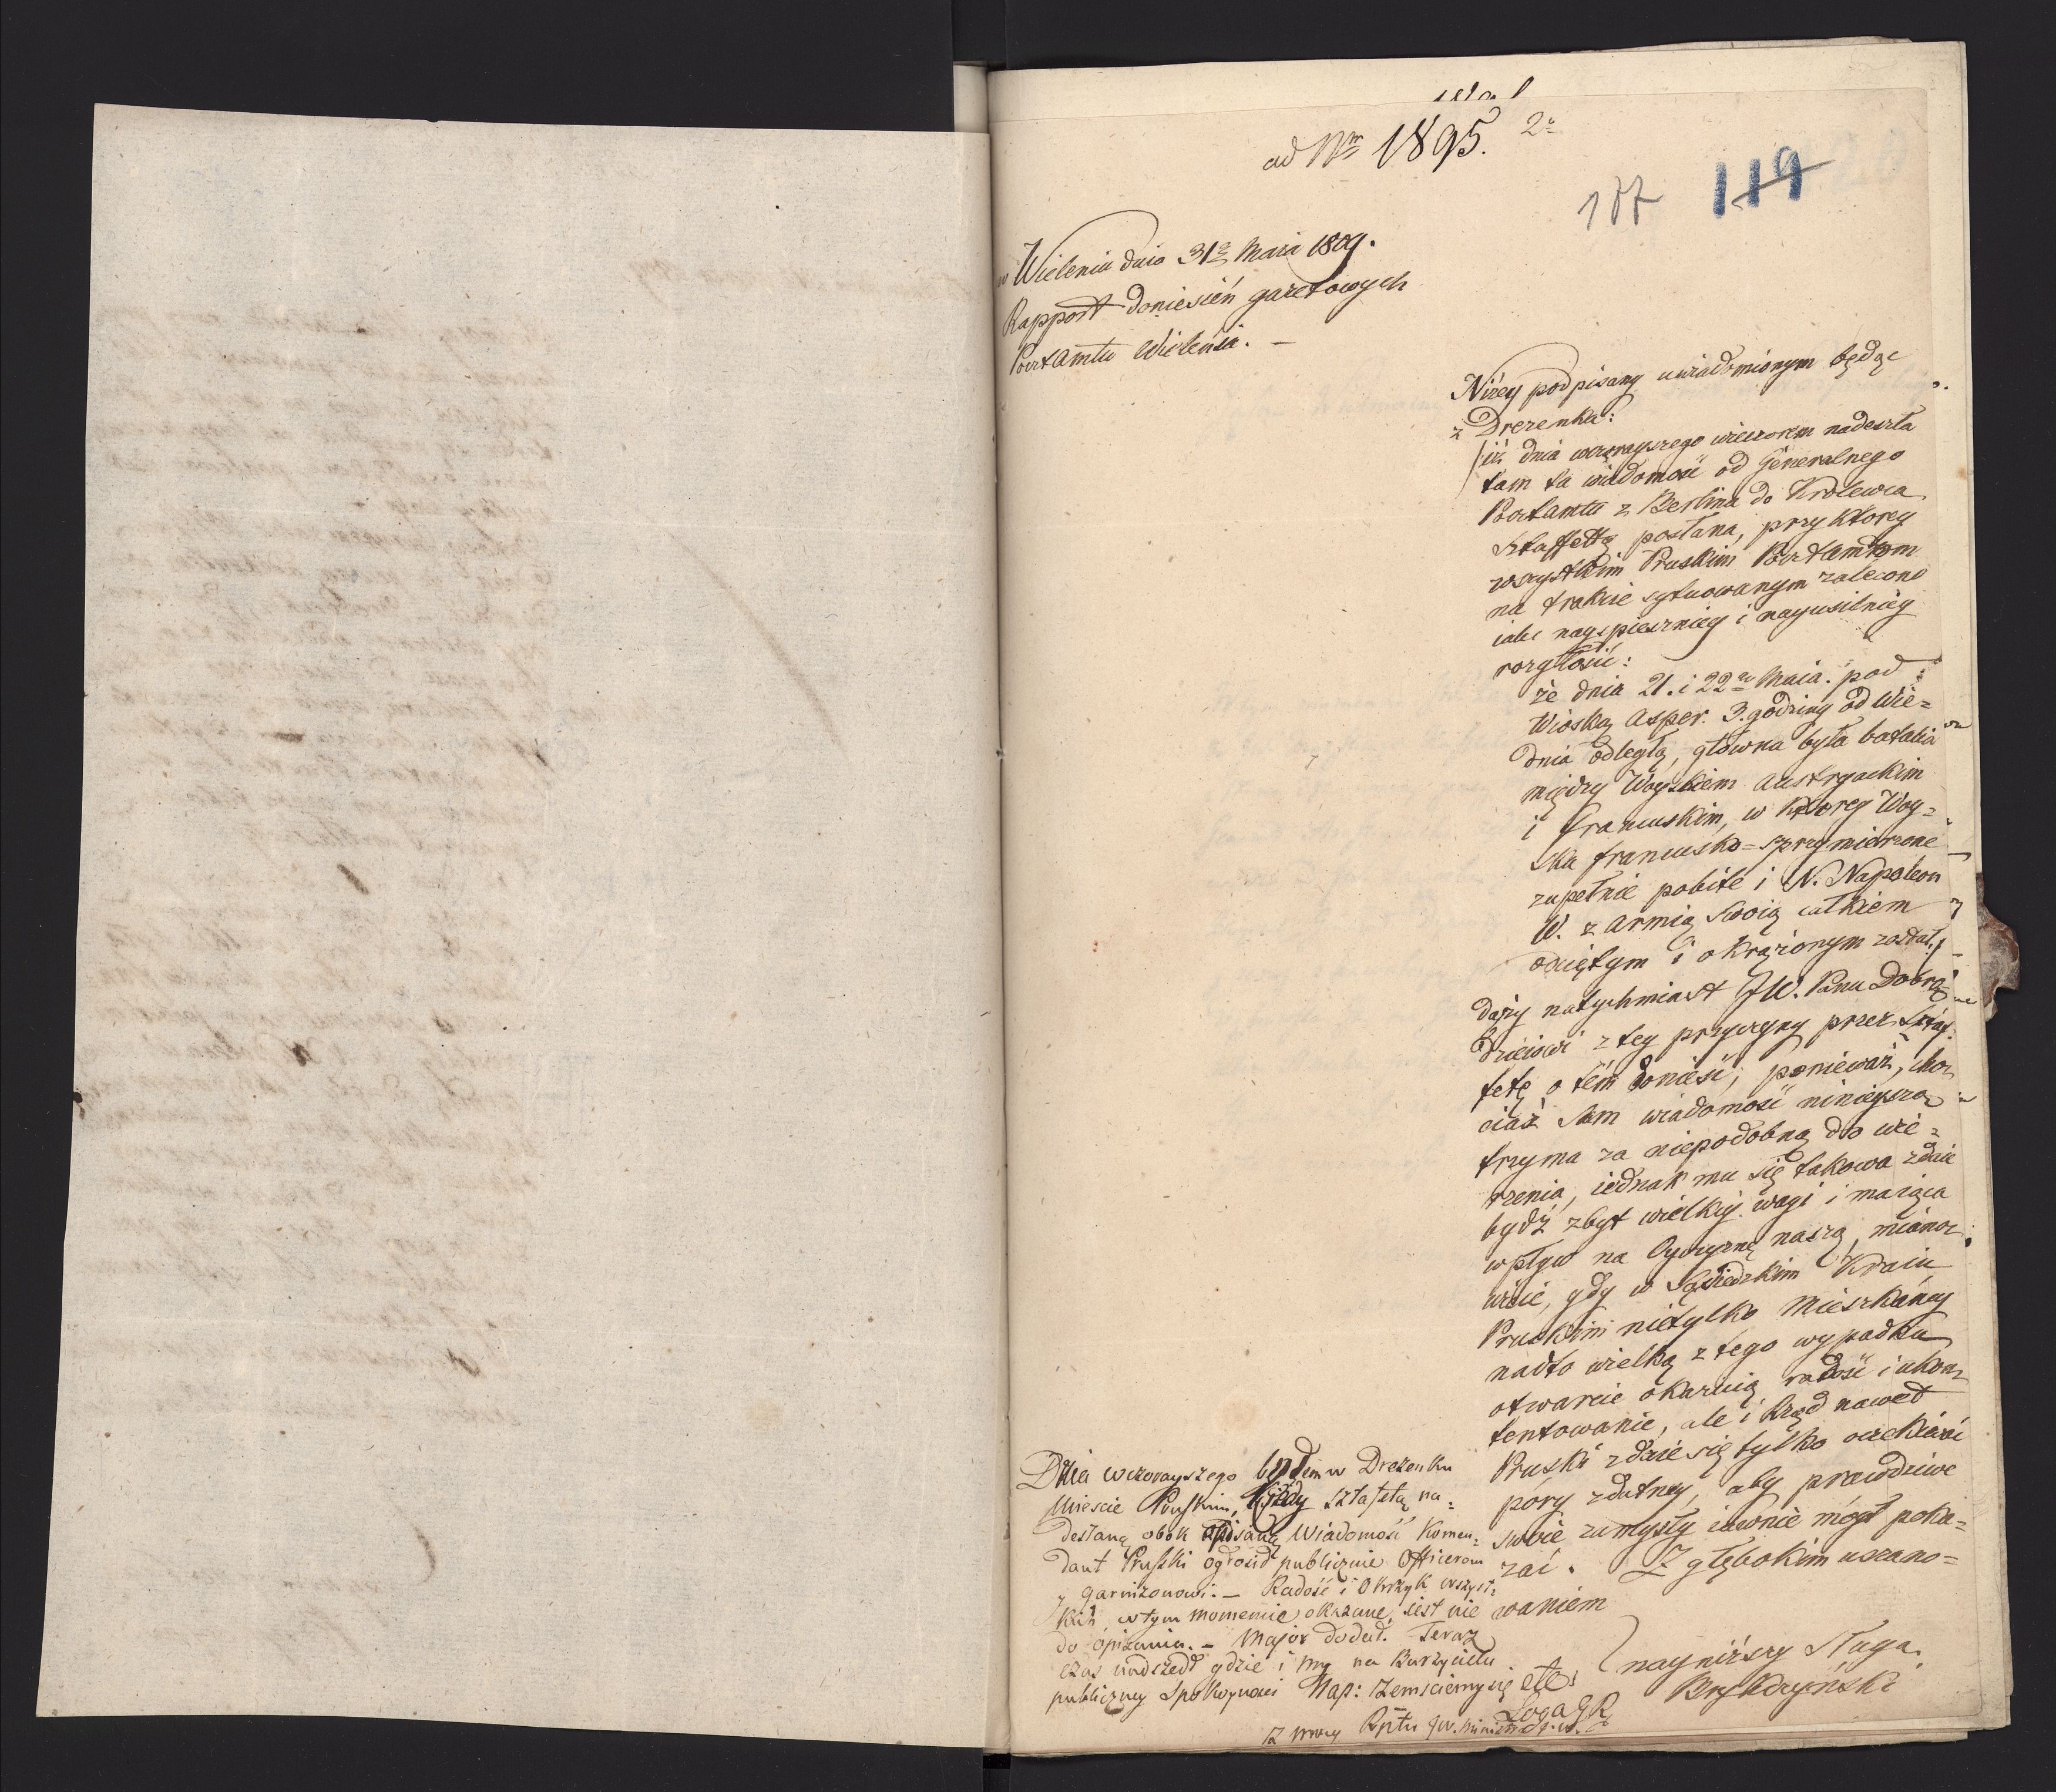 ad Nrm 1895. 2o
187 119
w Wieleniu dnia 31o Maia 1809.
Rapport doniesień gazetowych
Pocztamtu Wielenia. –
Niżey podpisany uwiadomionym będąc
z Drezenka:
iż dnia wczorayszego wieczorem nadeszła
tam ta wiadomość od Generalnego
Pocztamtu z Berlina do Krolewca
Sztaffettą posłana, przy ktorey
wszystkim Pruskim Pocztamtom
na trakcie sytuowanym zalecono
iak nayspieszniey i nayusilniey
rozgłosić:
że dnia 21. i 22go Maia. pod
Wioską Asper. 3. godziny od Wie=
dnia odległą, główna była batalia
między Woyskiem Austryackim
i francuskim, w ktorey Woy=
ska francusko=sprzymierzone
zupełnie pobite i N. Napoleon
W. z Armią swoią całkiem
odciętym i okrążonym został.
dąży natychmiast JW. Panu Dobro=
dzieiowi z tey przyczyny przez Sztaf=
fetę o tém donieść, ponieważ, cho=
ciaż sam wiadomość ninieyszą
trzyma za niepodobną do wie=
rzenia, iednak mu się takowa zdaie
bydź zbyt wielkiy wagi i maiąca
wpływ na Oyczyznę naszą, miano=
wicie, gdy w Sąsiedzkim Kraiu
Pruskim nietylko Mieszkańcy
nadto wielką z tego wypadku
otwarcie okazuią radość i ukon=
tentowanie, ale i Rząd nawet
Pruski zdaie się tylko oczekiwać
pory zdatney, aby prawdziwe
swoie zamysły iawnie mógł poka=
zać. Z głębokim uszano=
waniem
nayniższy Sługa
Dnia wczorayszego byłem w Drezenku
Mieście Pruskim, kiedy sztafetą na=
desłaną obok opisaną Wiadomość Komen=
dant Pruski ogłosił publicznie Officerom
y garnizonowi. – Radość i Okrzyk wszyst=
kich w tym momencie okazane, iest nie
do opisania. – Major dodał. Teraz
czas nadszedł gdzie i my na Burzycielu
publiczney Spokoyności Nap: zemściemy się etc: